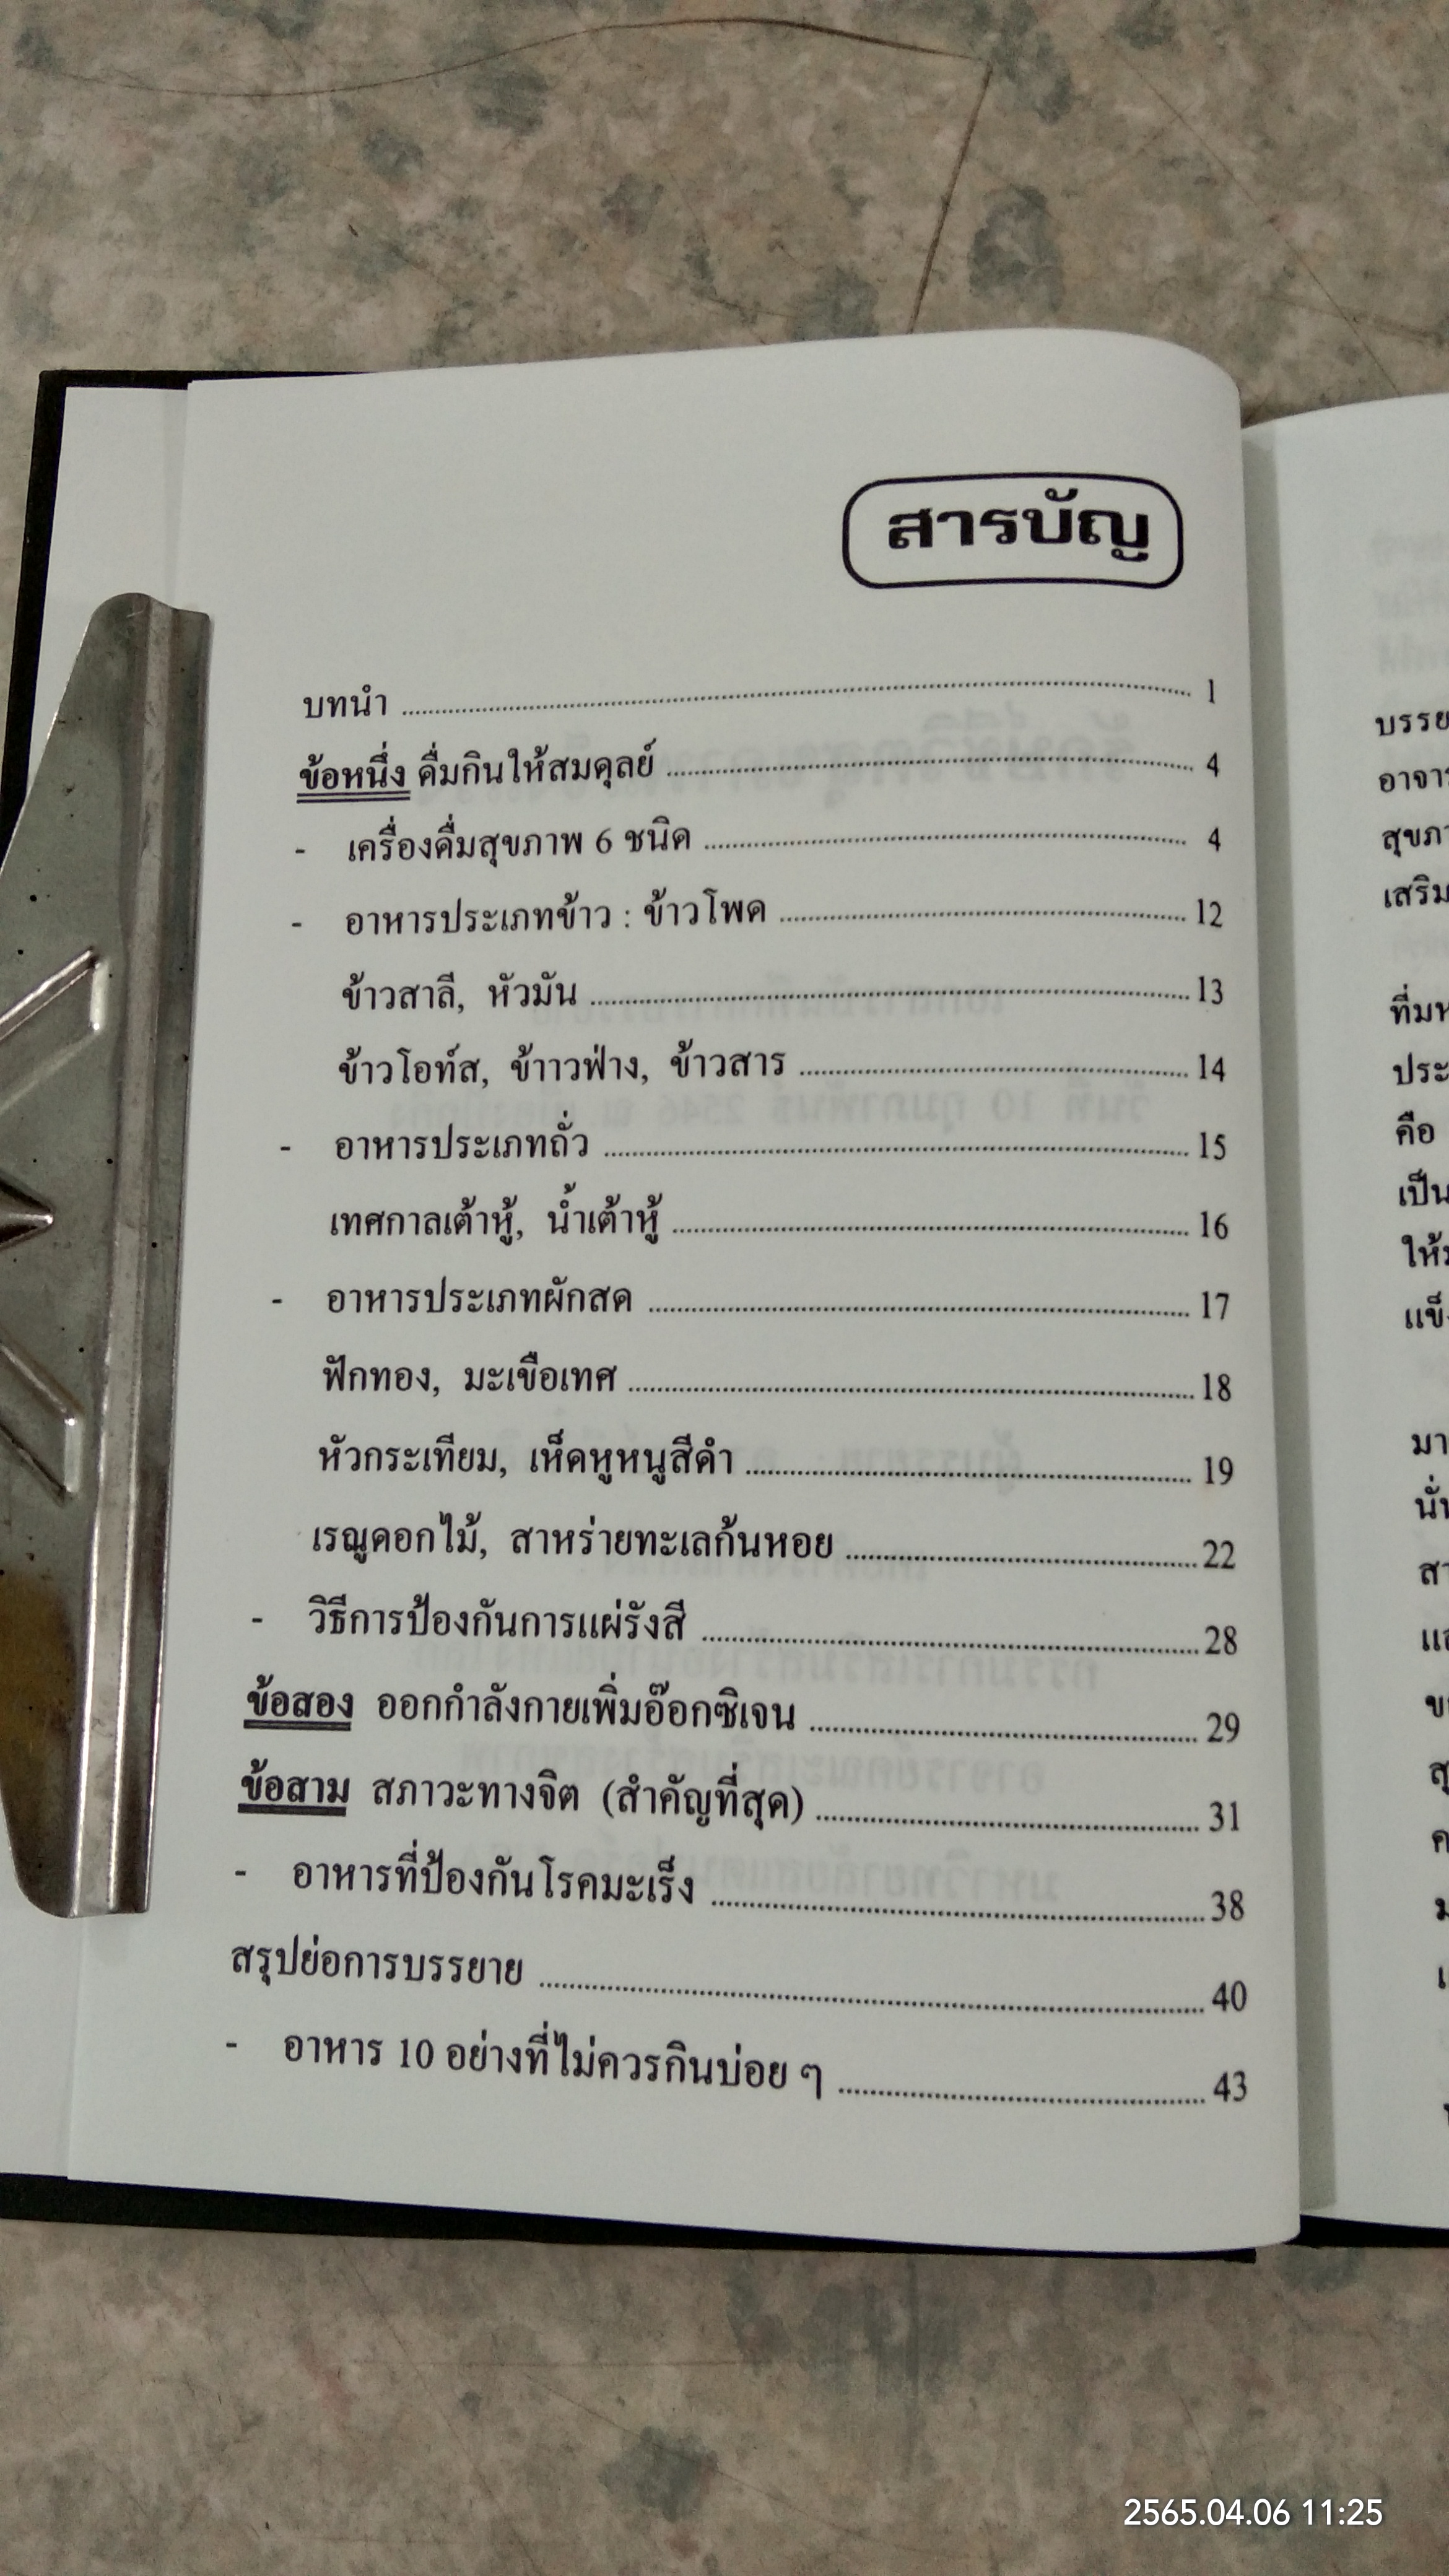 สารบัญ
บทนำ ........ 1
ข้อหนึ่ง ดื่มกินให้สมดุลย์ ........ 4
- เครื่องดื่มสุขภาพ 6 ชนิด ........ 4
- อาหารประเภทข้าว : ข้าวโพด ........ 12
ข้าวสาลี, หัวมัน ........ 13
ข้าวโอท์ส, ข้าาวฟ่าง, ข้าวสาร ........ 14
- อาหารประเภทถั่ว ........ 15
เทศกาลเต้าหู้, น้ำเต้าหู้ ........ 16
- อาหารประเภทผักสด ........ 17
ฟักทอง, มะเขือเทศ ........ 18
หัวกระเทียม, เห็ดหูหนูสีดำ ........ 19
เรณูดอกไม้, สาหร่ายทะเลก้นหอย ........ 22
- วิธีการป้องกันการแผ่รังสี ........ 28
ข้อสอง ออกกำลังกายเพิ่มอ๊อกซิเจน ........ 29
ข้อสาม สภาวะทางจิต (สำคัญที่สุด) ........ 31
- อาหารที่ป้องกันโรคมะเร็ง ........ 38
สรุปย่อการบรรยาย ........ 40
- อาหาร 10 อย่างที่ไม่ควรกินบ่อย ๆ ........ 43
คือ
2565.04.06 11:25